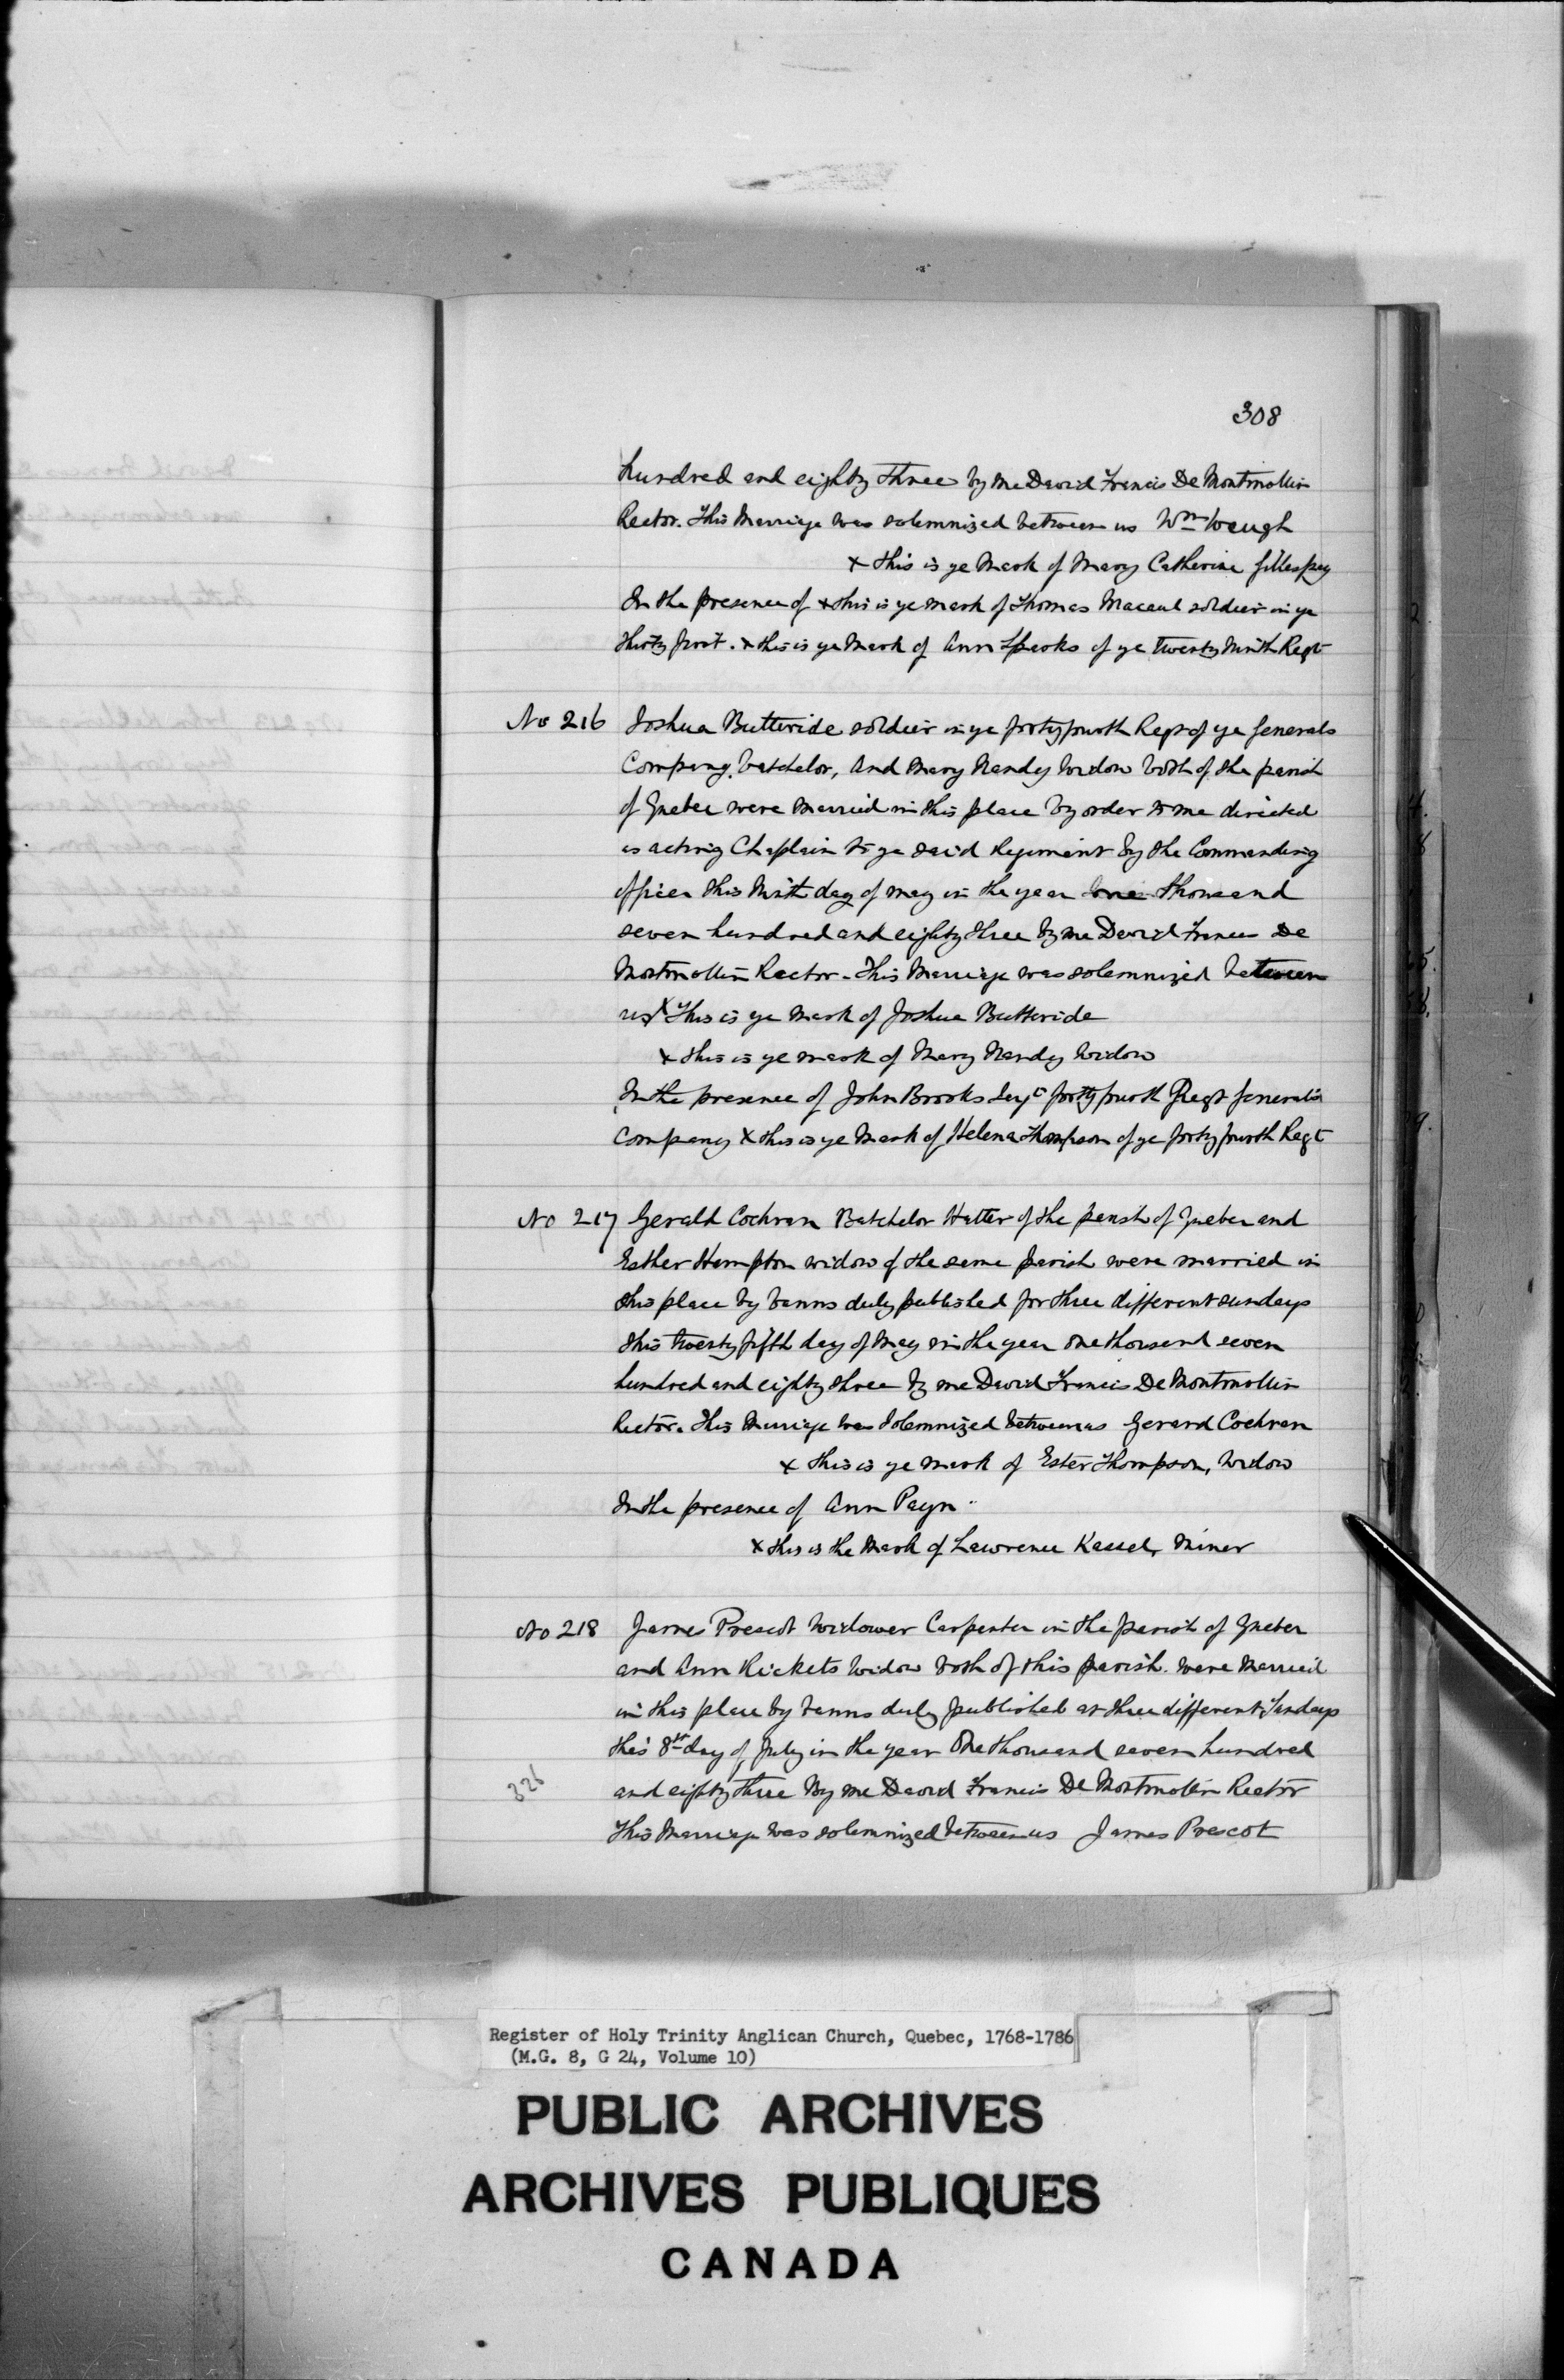 308
hundred and eighty three by me David Francis De Montmollin
Rector. This Marriage was solemnized between us Wm Waugh
x this is ye Mark of Mary Catherine Gillespey
In the presence of x this is ye mark of Thomas Macaul soldier in ye
thirty first. x this is ye Mark of Ann Sparks of ye twenty ninth Regt
No 216 Joshua Butteride soldier in ye forty fourth Regt of ye Generals
Company, batchelor, and Mary Nandy widow both of the parish
of Quebec were married in this place by order to me directed
as acting Chaplain to ye said Regiment by the Commanding
officer this Ninth day of May in the year One thousand
seven hundred and eighty three by me David Francis De
Montmollin Rector. This Marriage was solemnized between
us x This is ye Mark of Joshua Butteride
x this is ye mark of Mary Nandy Widow
In the presence of John Brooks forty fourth Regt General's
Company x this is ye Mark of Helena Thompson of ye forty fourth Regt
No 217 Gerald Cochran Batchelor Hatter of the parish of Quebec and
Esther Hampton widow of the same parish were married in
this place by banns duly published for three different sundays
this twenty fifth day of May in the year one thousand seven
hundred and eighty three by me David Francis De Montmollin
Rector. This Marriage was solemnized between us Gerard Cochran
x this is ye mark of Ester Thompson, Widow
In the presence of Ann Payn
x this is the Mark of Lawrence Kassel, Miner
No 218 James Prescot Widower Carpenter in the parish of Quebec
and Ann Rickets Widow both of this parish. were Married
in this place by banns duly published at three different Sundays
this 8th day of July in the year One thousand seven hundred
326 and eighty three By me David Francis De Montmollin Rector
This Marriage was solemnized between us James Prescot
Register of Holy Trinity Anglican Church, Quebec, 1768-1786
(M.G. 8, G 24, Volume 10)
PUBLIC ARCHIVES
ARCHIVES PUBLIQUES
CANADA